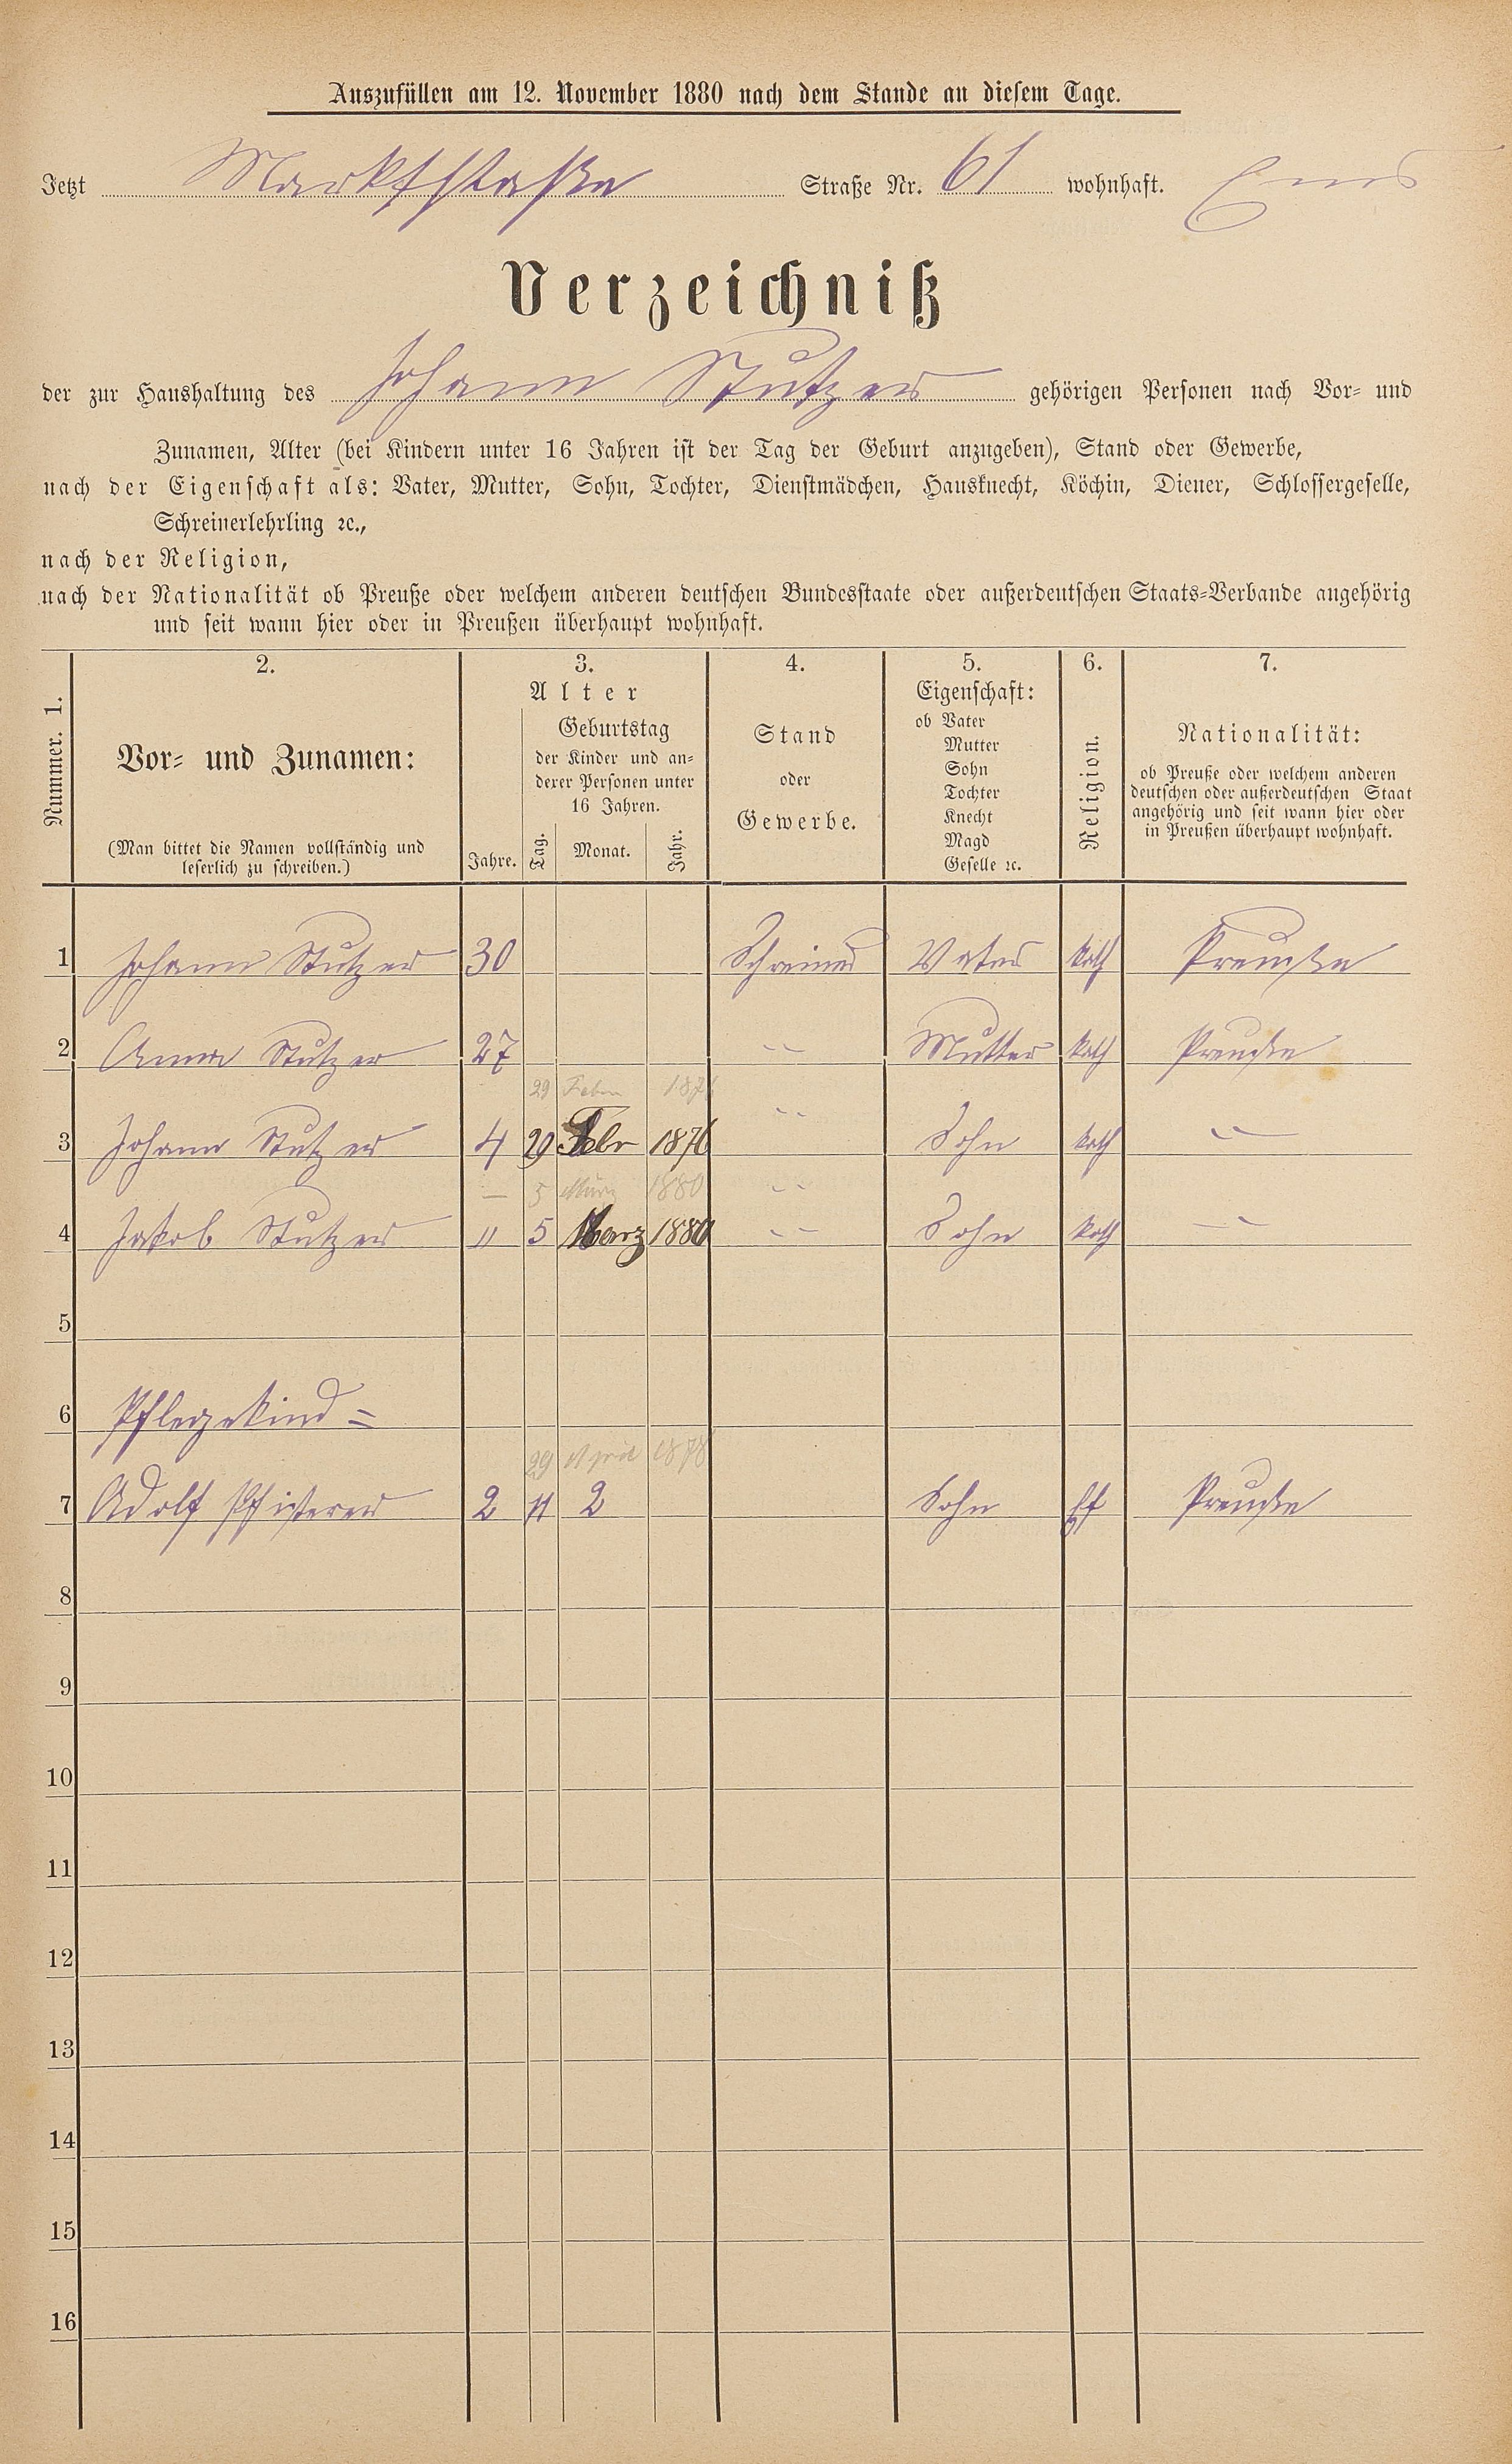 Auszufüllen am 12. November 1880 nach dem Stande an diesem Tage.
Jetzt Marktstraße Straße Nr. 61 wohnhaft. Ems
Verzeichniß
der zur Haushaltung des Johann Stutzer gehörigen Personen nach Vor- und
Zunamen, Alter (bei Kindern unter 16 Jahren ist der Tag der Geburt anzugeben), Stand oder Gewerbe,
nach der Eigenschaft als: Vater, Mutter, Sohn, Tochter, Dienstmädchen, Hausknecht, Köchin, Diener, Schlossergeselle,
Schreinerlehrling ꝛc.,
nach der Religion,
nach der Nationalität ob Preuße oder welchem anderen deutschen Bundesstaate oder außerdeutschen Staats-Verbande angehörig
und seit wann hier oder in Preußen überhaupt wohnhaft.
Nummer. 1.
2.
Vor- und Zunamen:
(Man bittet die Namen vollständig und
leserlich zu schreiben.)
3.
Alter
Jahre.
Geburtstag
der Kinder und an-
derer Personen unter
16 Jahren.
Tag. Monat. Jahr.
4.
Stand
oder
Gewerbe.
5.
Eigenschaft:
ob Vater
Mutter
Sohn
Tochter
Knecht
Magd
Geselle ꝛc.
6.
Religion.
7.
Nationalität:
ob Preuße oder welchem anderen
deutschen oder außerdeutschen Staat
angehörig und seit wann hier oder
in Preußen überhaupt wohnhaft.
1 Johann Stutzer 30 Schreiner Vater kath Preuße
2 Anna Stutzer 27 -- Mutter kath Preuße
29 Febr 1876
3 Johann Stutzer 4 29 Febr 1876 -- Sohn kath --
— 5 März 1880 --
4 Jakob Stutzer " 5 März 1880 -- Sohn kath --
5
6 Pflegekind =
29 April 1878
7 Adolf Pfisterer 2 11 2 Sohn Preuße
8
9
10
11
12
13
14
15
16